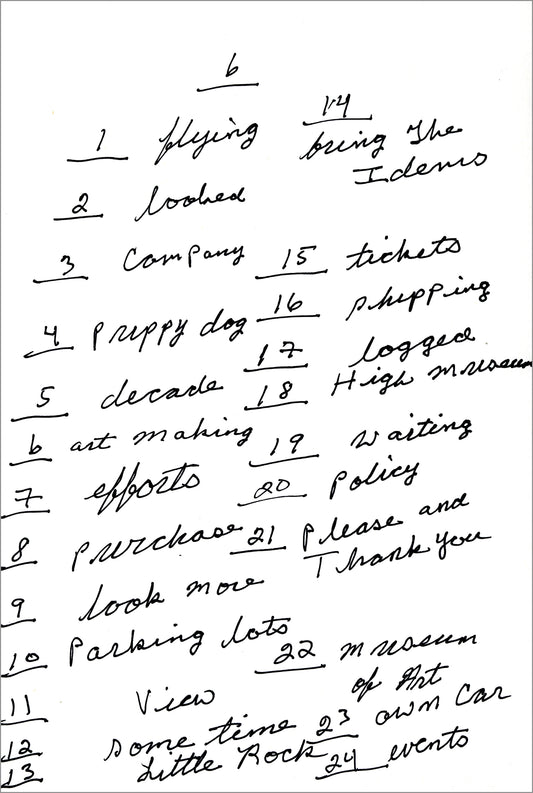 6
1 flying
2 looked
3 Company
4 Puppy dog
5 decade
6 art making
7 efforts
8 purchase
9 look more
10 Parking lots
11 View
12 some time
13 Little Rock
14 bring The
Idems
15 tickets
16 shipping
17 logged
18 High museum
19 waiting
20 Policy
21 Please and
Thank you
22 museum
of Art
23 own Car
24 events